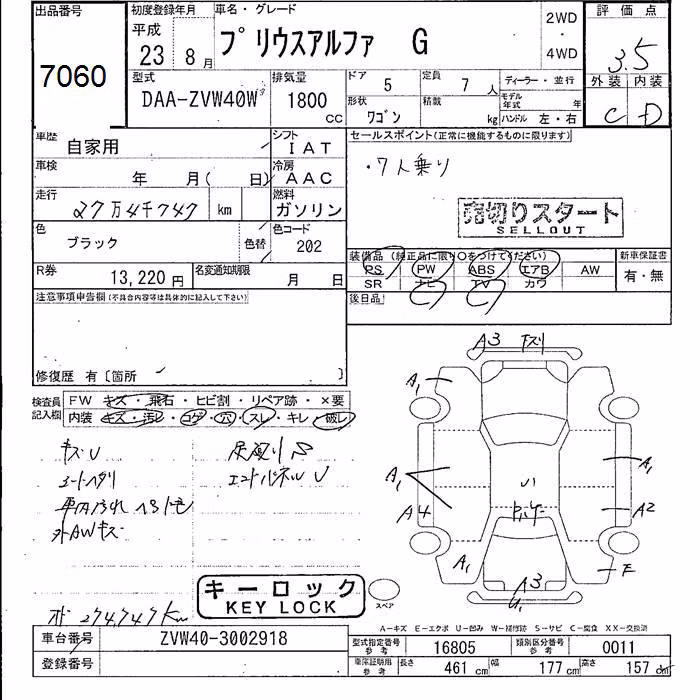 出品番号
7060
初度登録年月
平成
23年 8月
車名・グレード
プリウスアルファ G
2WD
・
4WD
評価点
3.5
外装 内装
C D
型式
DAA-ZVW40W
排気量
1800
CC
ドア
5
定員
7人
形状
ワゴン
積載
kg
ディーラー・並行
モデル年式 年
ハンドル 左・右
車歴
自家用
シフト
IAT
車検
年 月( 日)
冷房
AAC
走行
27万4千747 km
燃料
ガソリン
色
ブラック
色替
色コード
202
R券
13,220円
名変通知期限
月 日
セールスポイント(正常に機能するものに限ります)
・7人乗り
売切りスタート
SELLOUT
装備品(純正品に限り○をつけてください)
新車保証書
PS PW ABS エアB AW
有・無
SR ナビ TV カワ
後日品
注意事項申告欄(不具合内容等は具体的に記入して下さい)
修復歴 有〔箇所 〕
検査員記入欄
FW キズ・飛石・ヒビ割・リペア跡・×要
内装 キズ・汚レ・コゲ・穴・スレ・キレ・破レ
キズU
シートヘタリ
外AWキズ
A3
A1
A1
A1
A4
A2
A1
F
A3
U1
スペア
キーロック
KEY LOCK
274,747Km
A-キズ E-エクボ U-凹み W-補修跡 S-サビ C-腐食 XX-交換済
車台番号
ZVW40-3002918
登録番号
型式指定番号参考
16805
類別区分番号参考
0011
車庫証明用参考
長さ 461cm
幅 177cm
高さ 157cm